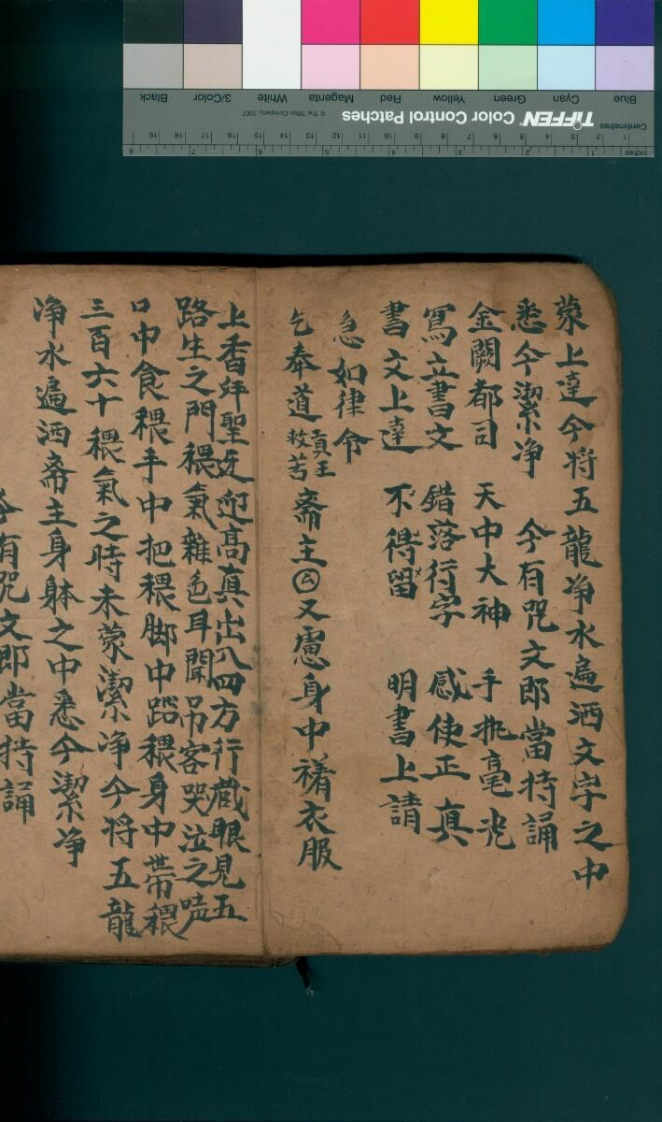 蒙上達今將五龍净水遍洒文字之中
悉令潔净 今有咒文郎當持誦
金闕都司 天中大神 手執毫光
寫立書文 錯落行字 感使正真
書文上達 不得留 明書上請
急如律令
乞奉道真王救苦斋主厶又慮身中褚衣服
上香拜聖迎高真出入四方行藏眼見五
路生之門穢氣雜色耳聞吊客哭泣之声
口中食穢手中把穢脚中踏穢身中帶穢
三百六十穢氣之時未蒙潔净今将五龍
净水遍洒斋主身躰之中悉令潔净
今有咒文郎當持誦
Blue Cyan Green Yellow Red Magenta White 3/Color Black
TIFFEN Color Control Patches
© The Tiffen Company, 2007
Centimetres 1 2 3 4 5 6 7 8 9 10 11 12 13 14 15 16 17 18 19
Inches